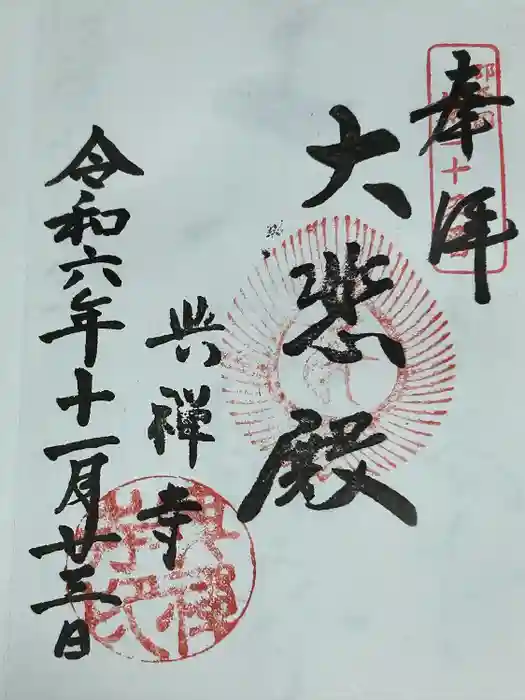 奉拝
大悲殿
興禅寺
令和六年十一月廿三日